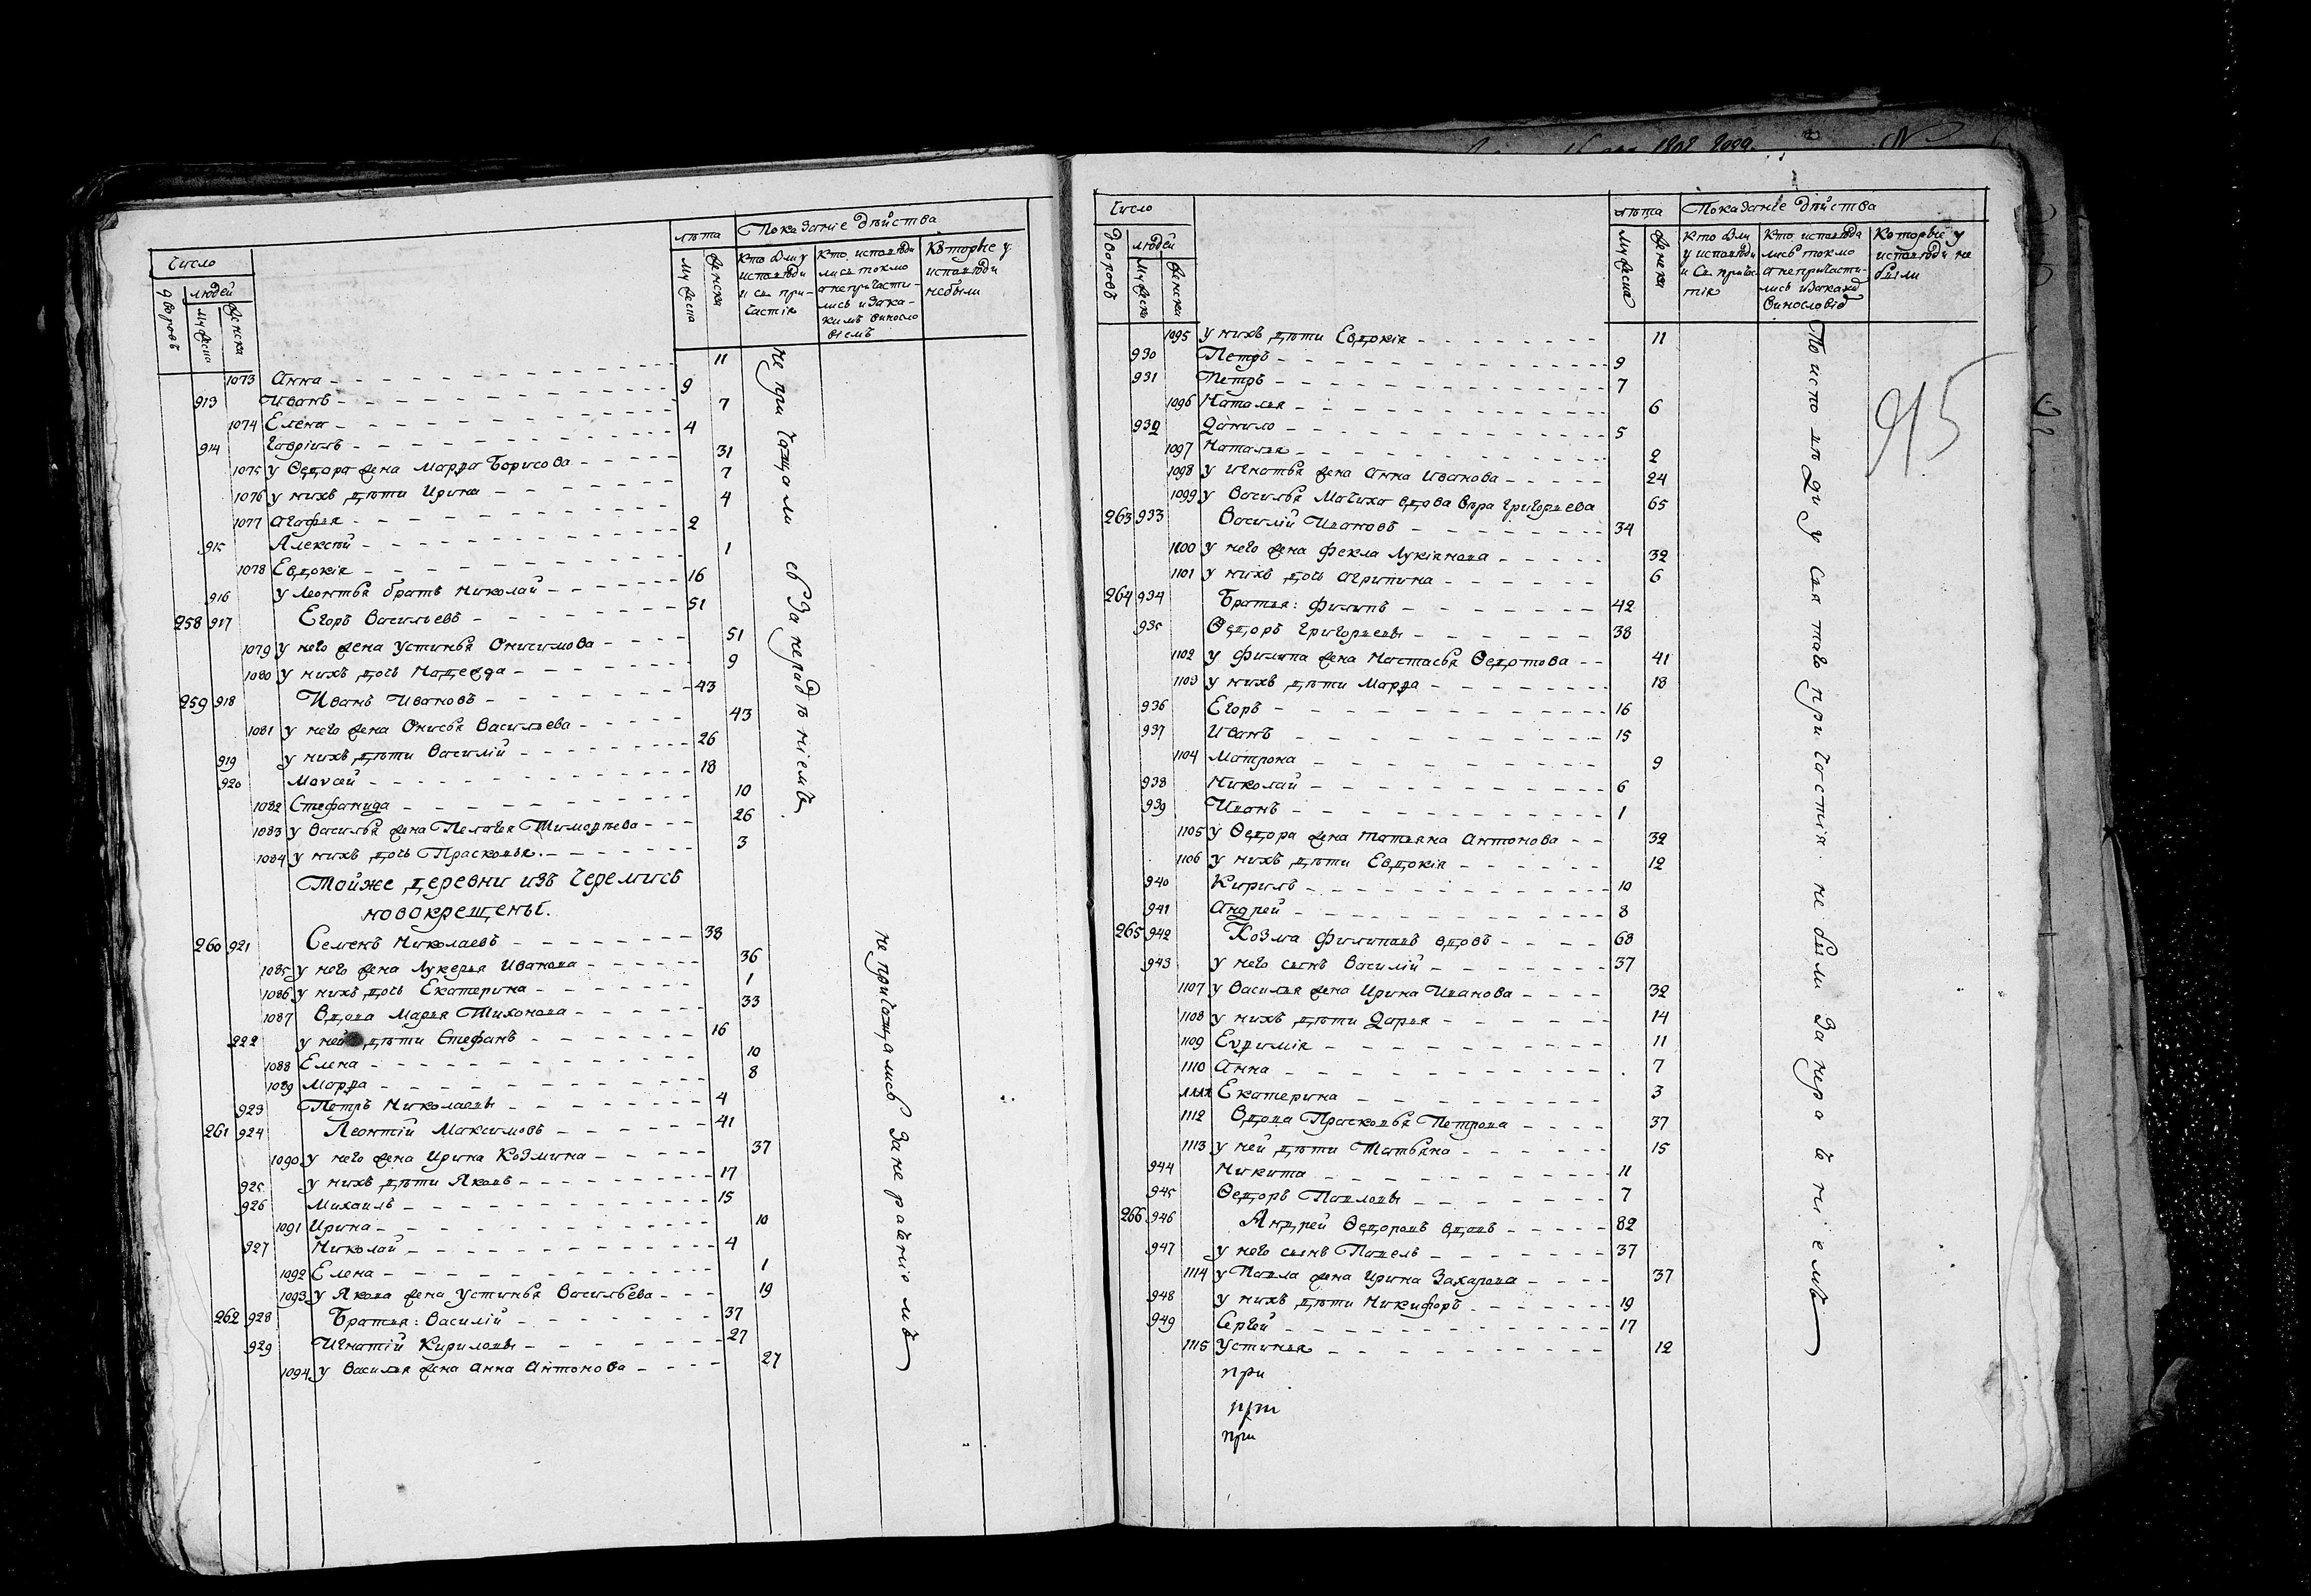 Число
дворовъ
людей
мужеска
женска
лѣта
мужеска
женска
Показаніе дѣйства
Кто были у исповѣди и св. причастія
Кто исповѣдались токмо а непричастились и за какимъ винословіемъ
Которые у исповѣди небыли
1073 Анна 11
913 Иванъ 9
1074 Елена 7
914 Гавріилъ 4
1075 у Ѳедора жена Марѳа Борисова 31
1076 у нихъ дѣти Ирина 7
1077 Агафья 4
915 Алексѣй 2
1078 Евдокія 1
916 у Леонтья братъ Николай 16
258 917 Егоръ Васильевъ 51
1079 у него жена Устинья Онисимова 51
1080 у нихъ дочь Надежда 9
259 918 Иванъ Ивановъ 43
1081 у него жена Онисья Васильева 43
919 у нихъ дѣти Василій 26
920 Моѵсей 18
1082 Стефанида 10
1083 у Василья жена Пелагея Тимоѳѣева 26
1084 у нихъ дочь Прасковья 3
Тойже деревни изъ черемисъ
новокрещены.
260 921 Семенъ Николаевъ 38
1085 у него жена Лукерья Иванова 36
1086 у нихъ дочь Екатерина 1
1087 Вдова Марья Тихонова 33
222 у ней дѣти Стефанъ 16
1088 Елена 10
1089 Марѳа 8
923 Петръ Николаевы 4
261 924 Леонтій Максимовъ 41
1090 у него жена Ирина Козмина 37
925 у нихъ дѣти Яковъ 17
926 Михаилъ 15
1091 Ирина 10
927 Николай 4
1092 Елена 1
1093 у Якова жена Устинья Васильева 19
262 928 Братья: Василій 37
929 Игнатій Кириловы 27
1094 у Василья жена Анна Антонова 27
не причащались за нерадѣніемъ
не причащались за нераченіемъ
Число
дворовъ
людей
мужеска
женска
лѣта
мужеска
женска
Показаніе дѣйства
Кто были у исповѣди и св. причастія
Кто исповѣдались токмо а непричастились и за какимъ винословіе
Которые у исповѣди не были
915
1095 у нихъ дѣти Евдокія 11
930 Петръ 9
931 Петръ 7
1096 Наталья 6
932 Данило 5
1097 Наталья 2
1098 у Игнатья жена Анна Иванова 24
1099 у Василья мачиха вдова Вѣра Григорьева 65
263 933 Василій Ивановъ 34
1100 у него жена Фекла Лукіянова 32
1101 у нихъ дочь Агрипина 6
264 934 Братья: Филипъ 42
935 Ѳедоръ Григорьевы 38
1102 у Филипа жена Настасья Ѳедотова 41
1103 у нихъ дѣти Марѳа 18
936 Егоръ 16
937 Иванъ 15
1104 Матрона 9
938 Николай 6
939 Иванъ 1
1105 у Ѳедора жена Татьяна Антонова 32
1106 у нихъ дѣти Евдокія 12
940 Кирилъ 10
941 Андрей 8
265 942 Козма Филиповъ вдовъ 68
943 у него сынъ Василій 37
1107 у Василья жена Ирина Иванова 32
1108 у нихъ дѣти Дарья 14
1109 Еуѳимія 11
1110 Анна 7
1111 Екатерина 3
1112 Вдова Прасковья Петрова 37
1113 у ней дѣти Татьяна 15
944 Никита 11
945 Ѳедоръ Павловы 7
266 946 Андрей Ѳедоровъ вдовъ 82
947 у него сынъ Павелъ 37
1114 у Павла жена Ирина Захарова 37
948 у нихъ дѣти Никифоръ 19
949 Сергей 17
1115 Устинья 12
при
при
при
По исповѣди у святаго причастія не были за нераченіемъ